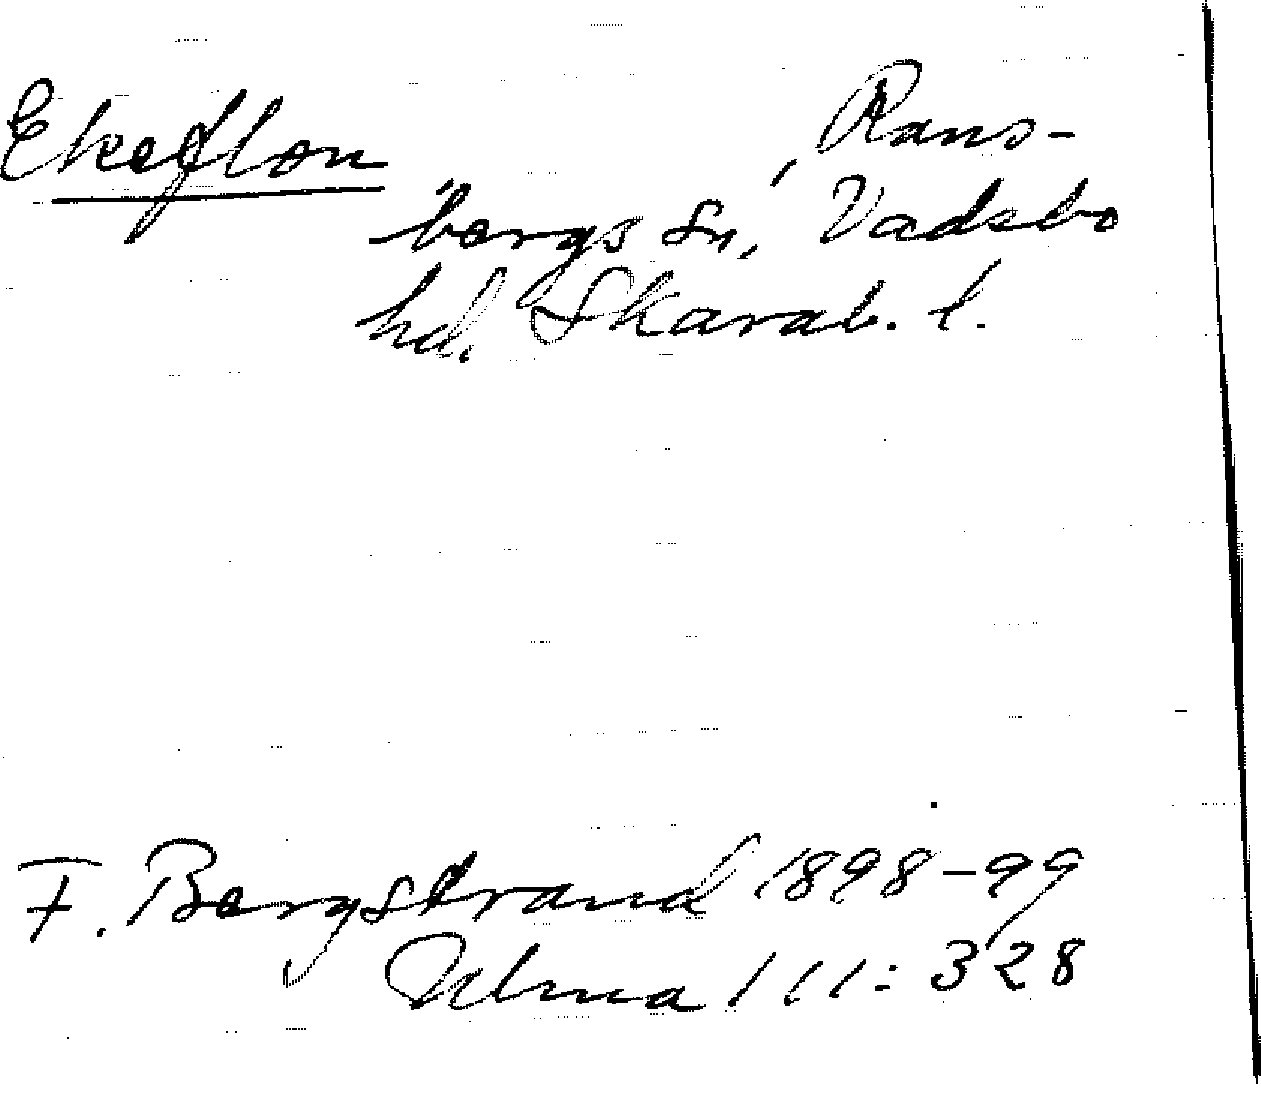 Ekeflon, Rans-
bergs sn, Vadsbo
hd. Skarab. l.
F. Bergstrand 1898-99
Ulma 111:328